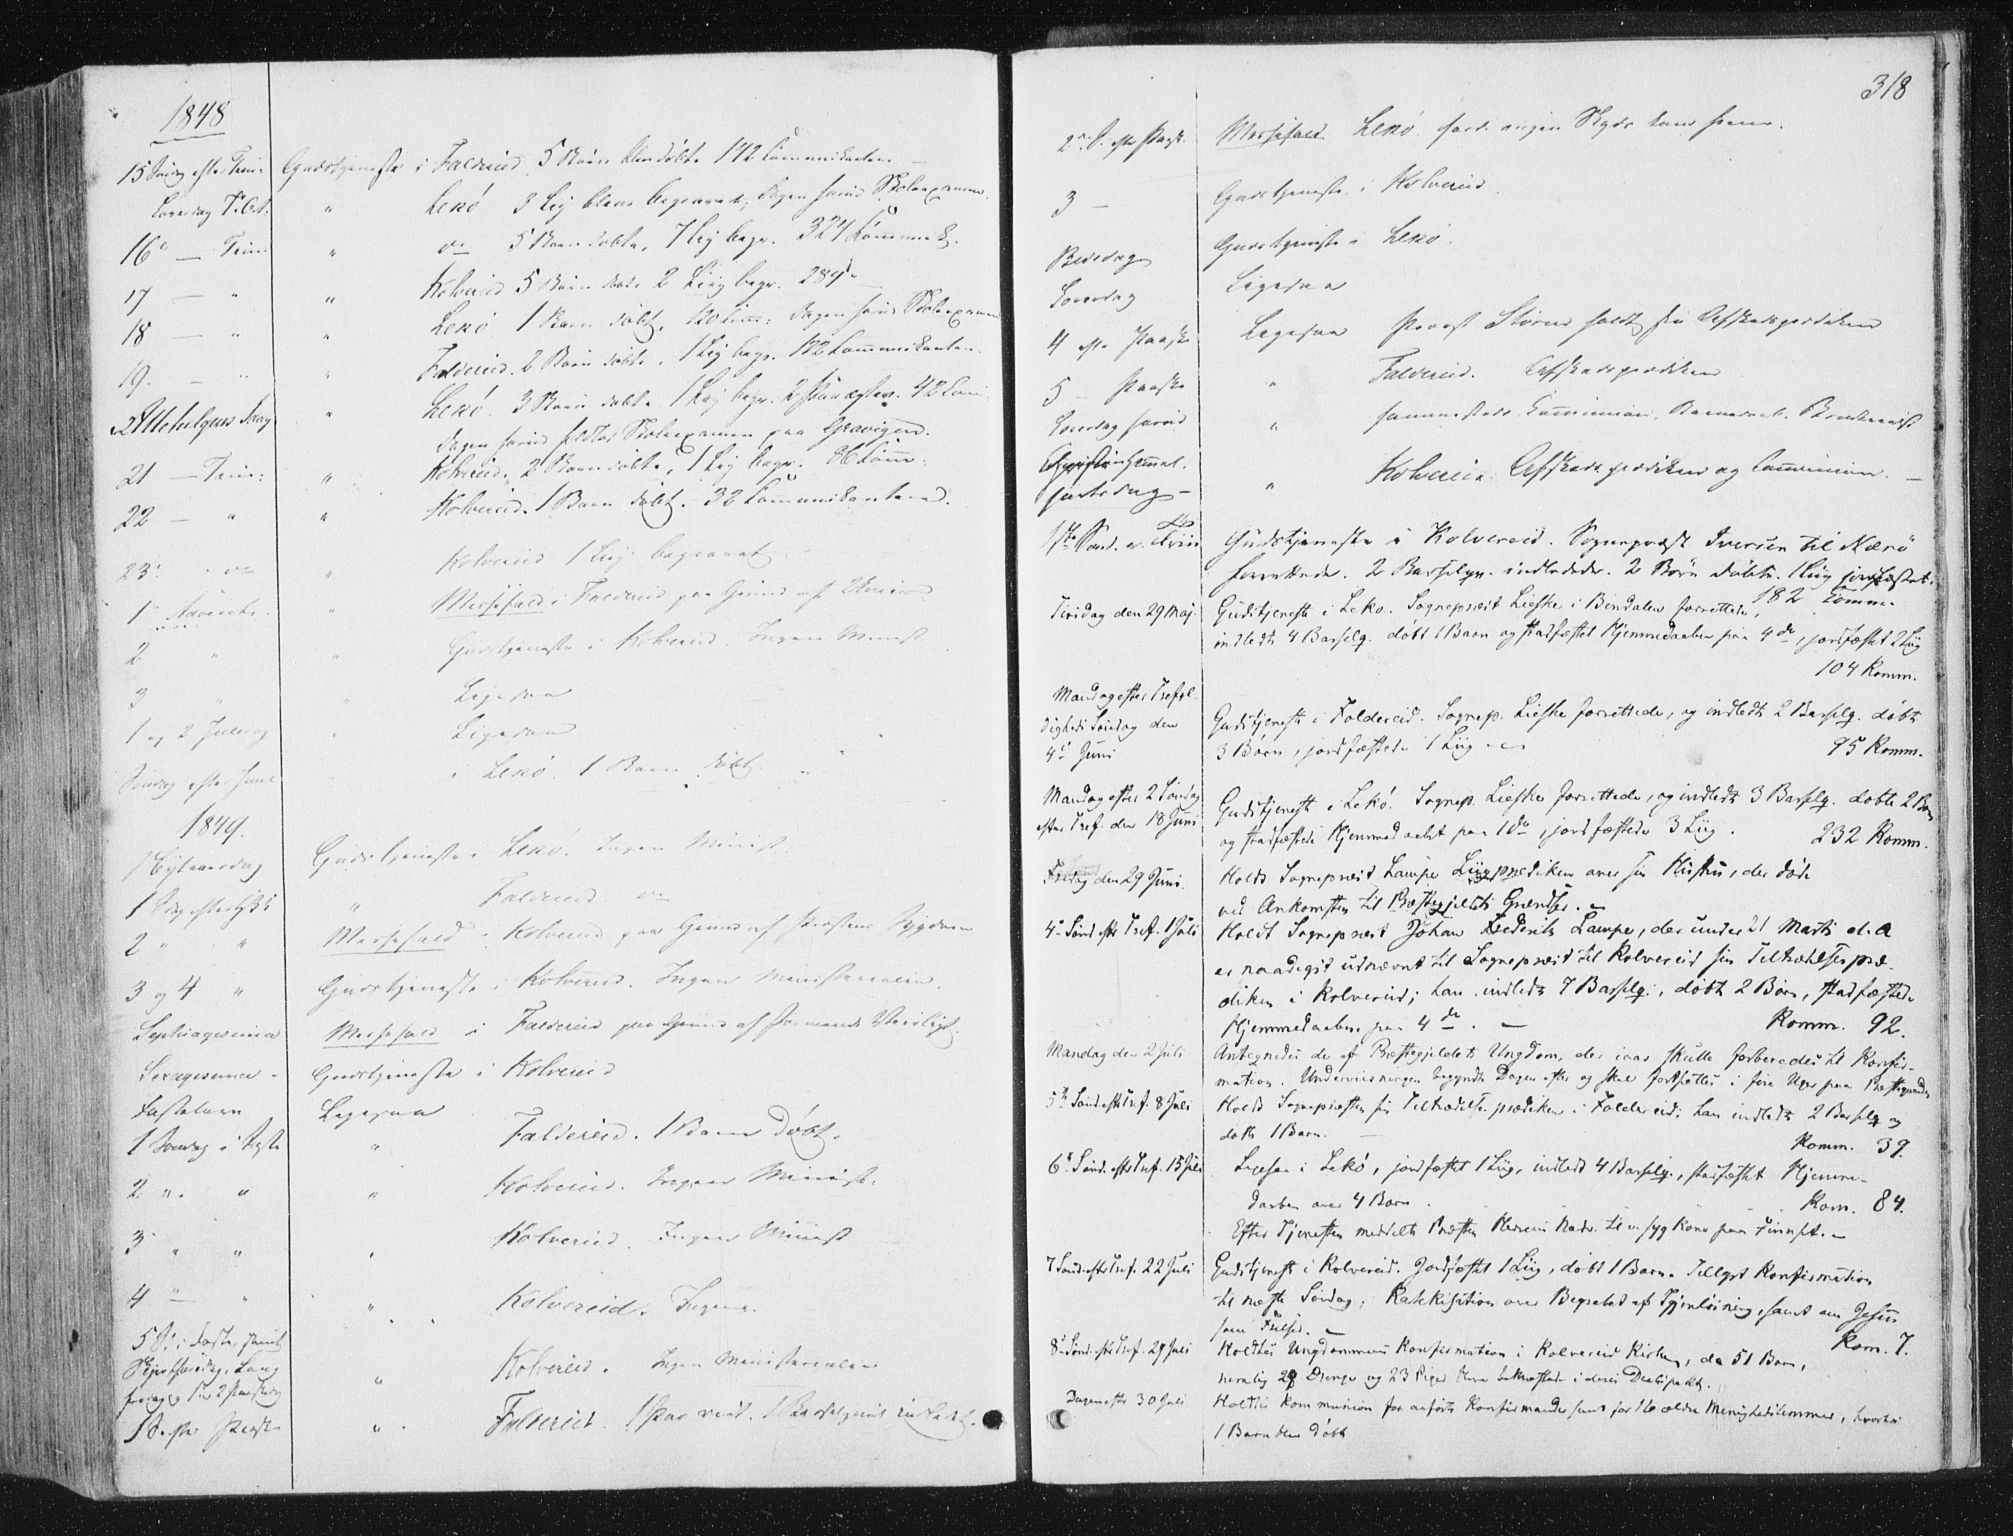 1848
15 Søndag efter Trin: Gudstjeneste i Foldereid 5 Børn bleve døbte 142 Communikanter
Løverdag 7. Oct. " Lekø 3 Lig bleve begravet, Dagen forud Skoleexamen.
16de — Trin " do 5 Børn døbte, 7 Lig begr. 324 Communik.
17 — " " Kolvereid 5 Børn døbte 2 Liig begr. 289 do
18 — " " Lekø 1 Barn døbt, 120 Com: Dagen forud Skoleexamen
19. — " " Foldereid. 2 Børn døbte, 1 Lig begr. 122 Communikanter.
Allehelgens Dag " Lekø. 3 Børn døbte 1 Lig begr. 2 Par ægtev. 42 Com:
Dagen forud holdtes Skoleexamen paa Gravigen.
21 — Trin: " Kolvereid. 2 Børn døbte, 1 Lig begr. Comm:
22 — " " Kolvereid. 1 Barn døbt. 32 Communikantere.
23. " do " Kolvereid 1 Lig begravet
1 Advents. " Messefald i Foldereid paa Grund af
2 " " Gudstjeneste i Kolvereid. Ingen Minist.
3 " " Ligesaa
1 og 2 Juledag " Ligesaa
Søndag efter Juul " i Lekø. 1 Barn døbt.
1849.
Nytaarsdag Gudstjeneste i Lekø. Ingen Minist.
1 Søndag efter " Foldereid do
2 " " Messefald i Kolvereid paa Grund af Præstens Sygdom
3 og 4 " Gudstjeneste i Kolvereid. Ingen Ministerialer.
Septuagesima Messefald i Foldereid paa Grund af
Sexagesima - Gudstjeneste i Kolvereid
Fastelavn Ligesaa
1 Søndag i Faste " Foldereid. 1 Barn døbt.
2 " " " Kolvereid. Ingen Minist.
3 " " " Kolvereid. Ingen Minist
4 " " " Kolvereid. Ingen.
5 S. i Faste, samt
Skjertorsdag, Lang
fredag, 1 og 2 Paaskedag " Kolvereid. Ingen Ministerialer
1 S. efter Paaske " Foldereid. 1 Par viet. 1 Barselqvind indledt.
318
2n S. efter Paask. Messefald Lekø. ford. ingen Skyds kom frem.
3 — Gudstjeneste i Kolvereid.
Bededag Gudstjeneste i Lekø.
Løverdag Ligesaa
4 efter Paaske Ligesaa Provst Størm holdt sin Afskedsprediken
5 Paaske " Foldereid. Afskedsprediken
Løverdag forud " sammesteds Communion.
Christi Himmel-
fartsdag — " Kolvereid Afskedsprediken og Communion. —
1ste Sønd. e. Trin Gudstjeneste i Kolvereid. Sognepræst Iversen til Nærø
forrettede. 2 Barselqv. indledede. 2 Børn døbte. 1 Liig jordfæstet.
182 Comm.
Tirsdag den 29 Maj. Gudstjeneste i Lekø. Sognepræst Lieske i Bindalen forrettede,
indledt 4 Barselq. døbt 1 Barn og stadfæstet Hjemmedaaben paa 4 de, jordfæstet 2 Liig
104 Komm.
Mandag efter Trefol-
digheds Søndag den
4de Juni Gudstjeneste i Foldereid. Sognep. Lieske forrettede, og indledt 2 Barselq. døbt
3 Børn, jordfæstede 1 Liig —
95 Komm.
Mandag efter 2 Søndag
efter Tref. den 18 Juni Gudstjeneste i Lekø. Sognep. Lieske forrettede, og indledt 3 Barselq. døbte 2 Børn
og stadfæstede Hjemmedaabet paa 1 de, jordfæstede 3 Liig. 232 Komm.
Fredag den 29 Juni. Holdt Sognepræst Lampe Liigprediken over sin Hustru, der døde
ved Ankomsten til Præstegjeldets Grændse. —
4de Sønd. efter Tref. 1 Juli Holdt Sognepræst Johan Frederik Lampe, der under 21 Marts d. A
er naadigst udnævnt til Sognepræst til Kolvereid sin Tiltrædelsespræ-
diken i Kolvereid; han indledt 7 Barselq., døbt 2 Børn, stadfæstede
Hjemmedaaben paa 4 de. — Komm. 92.
Mandag den 2 Juli Antegnedes de af Præstegjeldets Ungdom, der iaar skulle forberedes til Konfir-
mation. Underviisningen begyndte Dagen efter og skal fortsættes i fire Uger paa Præstegaarden
5te Sønd. efter Tref. 8 Juli Holdt Sognepræsten sin Tiltrædelsesprædiken i Foldereid; han indledt 2 Barselq og
døbt 1 Barn. — Komm. 39.
6te Sønd. efter Tref. 15 Juli Ligesaa i Lekø, jordfæstet 1 Liig, indledt 4 Barselq., stadfæstet Hjemme-
daaben over 4 Børn. Kom. 84.
Efter Tjenesten meddelte Præsten Herrens Nadv. til en syg Kone paa
7 Sønd. efter Tref. 22 Juli Gudstjeneste i Kolvereid. Jordfæstet 1 Liig, døbt 1 Barn. Tillyst Konfirmation
til næste Søndag; Katekisation over Begrebet af Gjenløsning, samt om Jesus
som Frelser. — Kom. 7.
8de Sønd. efter Tref. 29 Juli Holdtes Ungdommens Konfirmation i Kolvereid Kirke, da 51 Børn,
nemlig 28 Drenge og 23 Piger bleve bekræftede i deres Daabspakt.
Dagen efter 30 Juli Holdtes Kommunion for anførte Konfirmander samt for 16 ældre Menighedslemmer, hvorhos
1 Barn blev døbt